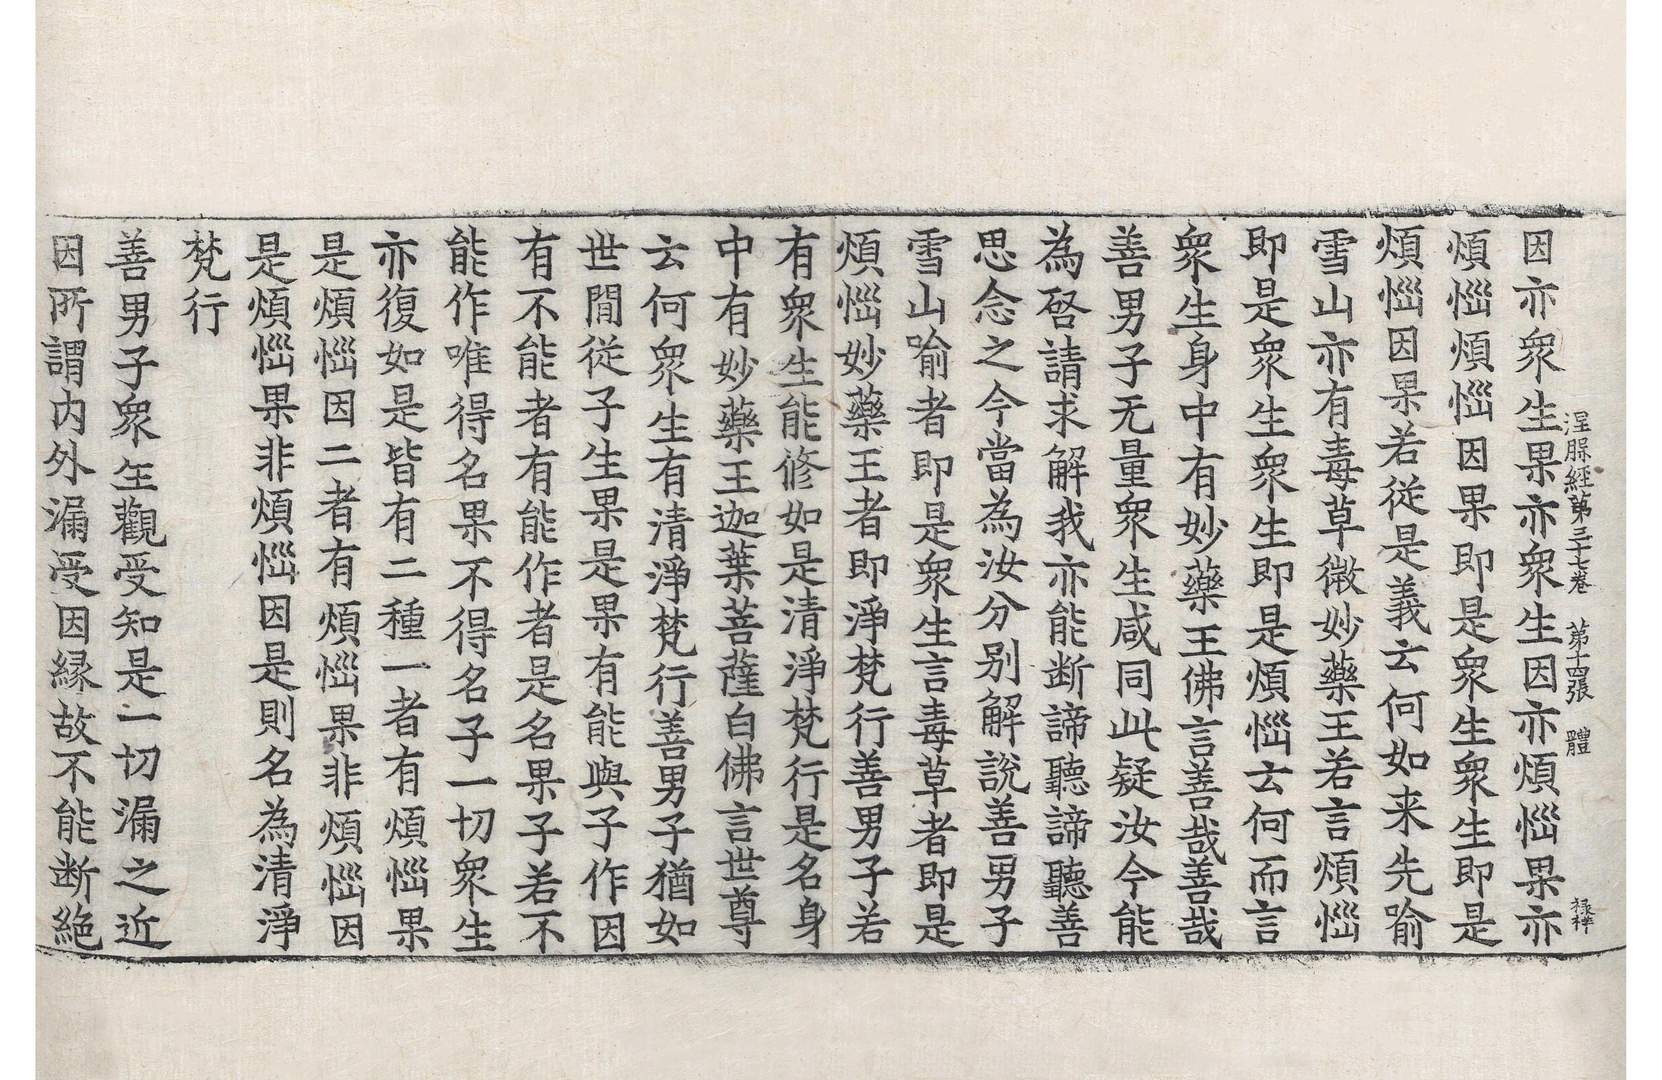 涅槃經第三十七卷 第十四張 體
因亦衆生果亦衆生因亦煩惱果亦
煩惱煩惱因果即是衆生衆生即是
煩惱因果若從是義云何如来先喻
雪山亦有毒草微妙藥王若言煩惱
即是衆生衆生即是煩惱云何而言
衆生身中有妙藥王佛言善哉善哉
善男子无量衆生咸同此疑汝今能
為啓請求解我亦能断諦聽諦聽善
思念之今當為汝分别解說善男子
雪山喻者即是衆生言毒草者即是
煩惱妙藥王者即淨梵行善男子若
有衆生能修如是清淨梵行是名身
中有妙藥王迦葉菩薩白佛言世尊
云何衆生有清淨梵行善男子猶如
世間從子生果是果有能與子作因
有不能者有能作者是名果子若不
能作唯得名果不得名子一切衆生
亦復如是皆有二種一者有煩惱果
是煩惱因二者有煩惱果非煩惱因
是煩惱果非煩惱因是則名為清淨
梵行
善男子衆生觀受知是一切漏之近
因所謂内外漏受因縁故不能断絶